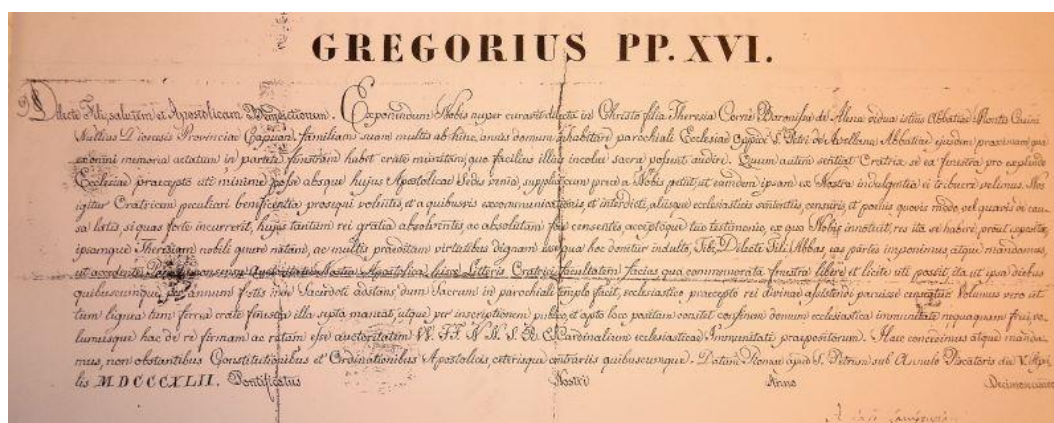 GREGORIUS PP. XVI.
Dilecte Fili, salutem et Apostolicam Benedictionem. Exponendum Nobis nuper curavit dilecta in Christo filia Theresia Cerne Baronissa de Alena vidua istius Abbatiae Montis Casini
Nullius Dioecesis Provinciae Capuan. familiam suam multis ab hinc annis domum inhabitare parochiali Ecclesiae S. Petri de Avellana Abbatiae ejusdem proximam quae
ex omni memoria aetatum in pariete fenestram habet crate munitam, quo facilius illius incolae sacra possint audire. Quum autem sentiat Oratrix se ea fenestra pro explendo
Ecclesiae praecepto uti minime posse absque hujus Apostolicae Sedis venia, supplici cum prece a Nobis petiit, ut eamdem ipsam ex Nostra indulgentia ei tribuere velimus. Nos
igitur Oratricem peculiari beneficentia prosequi volentes, et a quibusvis excommunicationis, et interdicti, aliisque ecclesiasticis sententiis, censuris, et poenis quovis modo, vel quavis de cau-
sa latis, si quas forte incurrerit, hujus tantum rei gratia absolventes ac absolutam fore censentes acceptoque tuo testimonio, ex quo Nobis innotuit, res ita se habere prout exposita,
ipsamque Theresiam nobili genere natam, ac multis praeditam virtutibus dignam esse quae hoc donetur indulto, Tibi, Dilecte Fili Abbas, eas partes imponimus, atque mandamus,
ut accedente consensu Auctoritate Nostra Apostolica hisce Litteris Oratrici facultatem facias qua commemorata fenestra libere et licite uti possit, ita ut ipsa diebus
quibuscumque per annum festis inde Sacerdoti adstans dum Sacrum in parochiali templo facit, ecclesiastico praecepto rei divinae assistendi paruisse censeatur. Volumus vero ut
tum lignea tum ferrea crate fenestra illa septa maneat, utque per inscriptionem publice, et apto loco positam constet confinem domum ecclesiastica immunitate nequaquam frui, vo-
lumusque hac de re firmam ac ratam esse auctoritatem VV. FF. N N. S. R. E. Cardinalium ecclesiasticae Immunitati praepositorum. Haec concedimus atque manda-
mus, non obstantibus Constitutionibus et Ordinationibus Apostolicis, ceterisque contrariis quibuscumque. Datum Romae apud S. Petrum sub Annulo Piscatoris die V. Apri-
lis MDCCCXLII. Pontificatus Nostri Anno Duodecimo